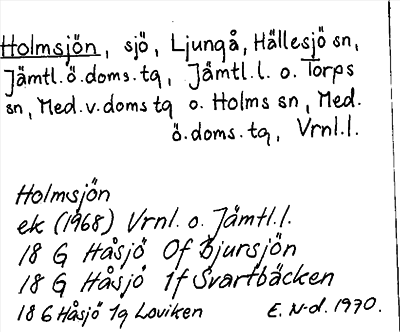 Holmsjön, sjö, Ljungå, Hällesjö sn,
Jämtl.ö.doms.tq, Jämtl.l. o. Torps
sn, Med.v.doms tq o. Holms sn, Med.
ö.doms.tq, Vrnl.l.
Holmsjön
ek (1968) Vrnl. o. Jämtl.l.
18 G Håsjö 0f Bjursjön
18 G Håsjö 1f Svartbäcken
18 G Håsjö 1g Loviken E. N-d. 1970.